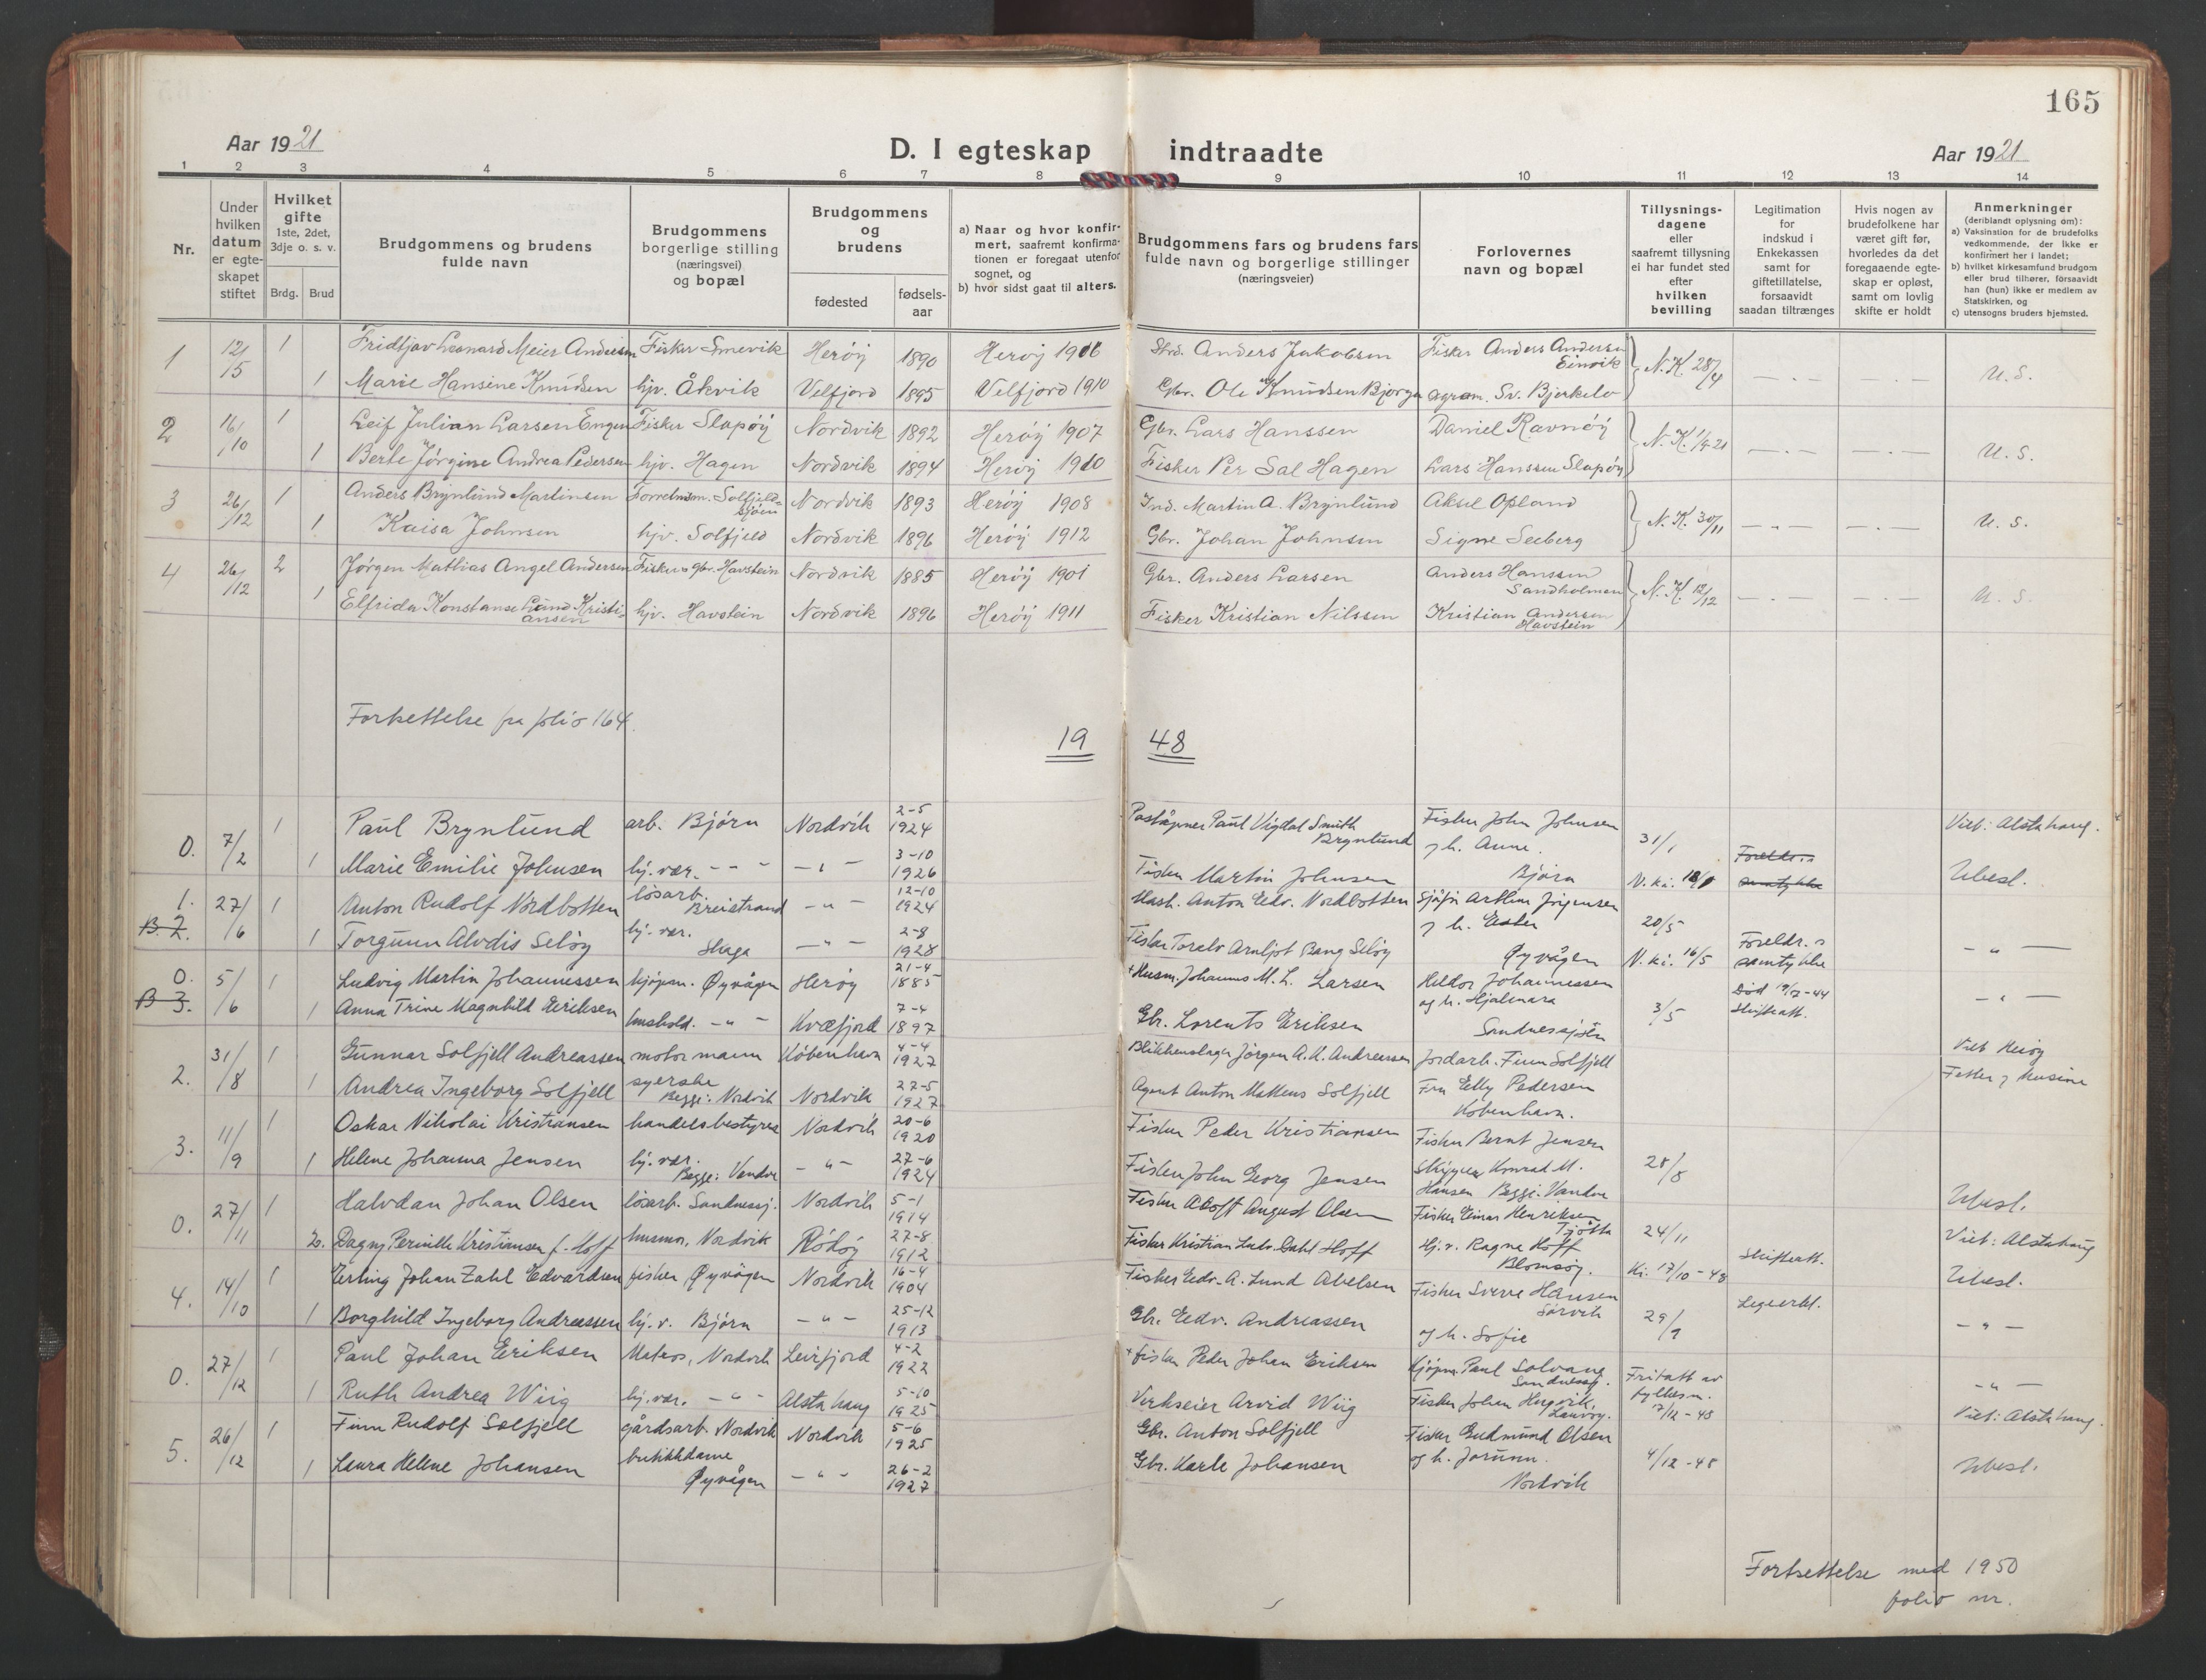 165
Aar 1921
D. I egteskap indtraadte
Aar 1921
1 2 3 4 5 6 7 8 9 10 11 12 13 14
Nr.
Under hvilken datum er egteskapet stiftet
Hvilket gifte 1ste, 2det, 3dje o. s. v.
Brdg. Brud
Brudgommens og brudens fulde navn
Brudgommens borgerlige stilling (næringsvei) og bopæl
Brudgommens og brudens
fødested
fødselsaar
a) Naar og hvor konfirmert, saafremt konfirmationen er foregaat utenfor sognet, og
b) hvor sidst gaat til alters.
Brudgommens fars og brudens fars fulde navn og borgerlige stillinger (næringsveier)
Forlovernes navn og bopæl
Tillysningsdagene eller saafremt tillysning ei har fundet sted efter hvilken bevilling
Legitimation for indskud i Enkekassen samt for giftetillatelse, forsaavidt saadan tiltrænges
Hvis nogen av brudefolkene har været gift før, hvorledes da det foregaaende egteskap er opløst, samt om lovlig skifte er holdt
Anmerkninger (deriblandt oplysning om):
a) Vaksination for de brudefolks vedkommende, der ikke er konfirmert her i landet;
b) hvilket kirkesamfund brudgom eller brud tilhører, forsaavidt han (hun) ikke er medlem av Statskirken, og
c) utensogns bruders hjemsted.
1 12/5 1 Fridtjav Leonard Meier Andersen Fisker Smevik Herøy 1890 Herøy 1906 Anders Jakobsen Fisker Anders Andersen Einvik N.K. 28/4 U.S.
1 Marie Hansine Knudsen hjv. Åkvik Velfjord 1895 Velfjord 1910 Gbr. Ole Knudsen Bjørga agrom. Sv. Bjerkelo
2 16/10 1 Leif Julian Larsen Engen Fisker Slapøy Nordvik 1892 Herøy 1907 Gbr. Lars Hanssen Daniel Ravnøy N.K. U.S.
1 Berle Jørgine Andrea Pedersen hjv. Hagen Nordvik 1894 Herøy 1910 Fisker Per Sal Hagen Lars Hanssen Slapøy
3 26/12 1 Anders Brynlund Martinsen Forretnsm. Solfjeldsjøen Nordvik 1893 Herøy 1908 Ind. Martin A. Brynlund Aksel Opland N.K. 30/11 U.S.
1 Kaisa Johnsen hjv. Solfjeld Nordvik 1896 Herøy 1912 Gbr. Johan Johnsen Signe Seeberg
4 26/12 2 Jørgen Mathias Angel Andersen Fisker o gbr. Havstein Nordvik 1885 Herøy 1901 Gbr. Anders Larsen Anders Hanssen Sandholmen N.K. 12/12 U.S.
1 Elfrida Konstanse Lund Kristiansen hjv. Havstein Nordvik 1896 Herøy 1911 Fisker Kristian Nilssen Kristian Andersen Havstein
Fortsettelse fra folio 164.
1948
0. 7/2 1 Paul Brynlund arb. Bjørn Nordvik 2-5 1924 Poståpner Paul Vigdal Smith Brynlund Fisker John Johnsen 31/1 Viet: Alstahaug.
1 Marie Emilie Johnsen hj. vær. - " - - " - 3-10 1926 Fisker Martin Johnsen g h. Anne. Bjørn N. ki. Foreldr.s samtykke Ubesl.
1. B. 2. 27/6 1 Anton Rudolf Nordbotten løsarb. Breistrand - " - 12-10 1924 Mask. Anton Edv. Nordbotten Sjåfør Arthur Jørgensen 20/5
1 Torgunn Alvdis Seløy hj. vær. Skaga - " - 2-8 1928 Fisker Toralv Arnljot Bang Seløy g h. Ester Øyvågen N. ki. 16/5 Foreldr.s samtykke - " -
0. B 3. 5/6 1 Ludvig Martin Johannessen kjøpm. Øyvågen Herøy 21-4 1885 + Husm. Johannes M. L. Larsen Heldor Johannessen Død 19/7-44 - " -
1 Anna Trine Magnhild Eriksen hushold. - " - Kvæfjord 7-4 1897 Gbr. Lorents Eriksen og h. Hjalmara Sandnessjøen 3/5 Skifteatt.
2. 31/8 1 Gunnar Solfjell Andreassen motormann København 4-4 1927 Blikkenslager Jørgen A. K. Andreassen Jordarb. Finn Solfjell Viet Herøy
1 Andrea Ingeborg Solfjell syerske Begge: Nordvik Nordvik 27-5 1927 Agent Anton Matheus Solfjell Fru Elly Pedersen København. Fetter g kusine
3. 11/9 1 Oskar Nikolai Kristiansen handelsbestyrer Nordvik 20-6 1920 Fisker Peder Kristiansen Fisker Bernt Jensen
1 Helene Johanna Jensen hj. vær. Begge: Vandve - " - 27-6 1924 Fisker John Georg Jensen Skipper Konrad M. Hansen Begge: Vandve 28/8
0. 27/11 1 Halvdan Johan Olsen løsarb. Sandnessj. Nordvik 5-1 1914 Fisker Adolf August Olsen Fisker Einar Henriksen Tjøtta 24/11 Ubesl.
2. Dagny Pernille Kristiansen f. Hoff husmo, Nordvik Rødøy 27-8 1912 Fisker Kristian Ludv. Dahl Hoff Hj. v. Ragna Hoff Blomsøy. Ki. 17/10-48 Skifteatt. Viet: Alstahaug
4. 14/10 1 Erling Johan Zahl Edvardsen fisker, Øyvågen Nordvik 16-4 1904 Fisker Edv. A. Lund Abelsen Fisker Sverre Hansen Sørvik 29/9 Legeerkl. Ubesl.
1 Borghild Ingeborg Andreassen hj. v. Bjørn - " - 25-12 1913 Gbr. Edv. Andreassen og h. Sofie - " -
0. 27/12 1 Paul Johan Eriksen Matros, Nordvik Leirfjord 4-2 1922 + fisker Peder Johan Eriksen Kjøpm. Paul Solvang Sandnessj. Fritatt av fylkesm. 7/12-48 - " -
1 Ruth Andrea Wiig hj. vær. - " - Alstahaug 5-10 1925 Verkseier Arvid Wiig Fisker Johan Viet: Alstahaug.
5. 26/12 1 Finn Rudolf Solfjell gårdsarb. Nordvik Nordvik 5-6 1925 Gbr. Anton Solfjell Fisker Gudmund Olsen
1 Laura Helene Johansen butikkdame Øyvågen - " - 26-2 1927 Gbr. Karle Johansen og h. Jorunn. Nordvik 4/12-48 Ubesl.
Fortsettelse med 1950
folio nr.